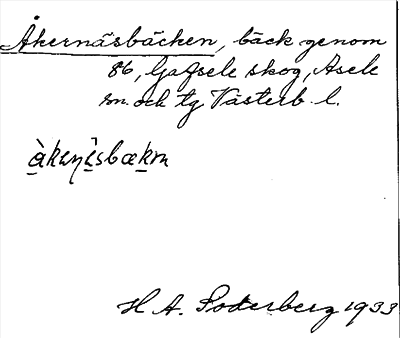 Åkernäsbäcken, bäck genom
86, Gafsele skog, Åsele
sn. och tg Västerb. l.
H A. Söderberg 1933